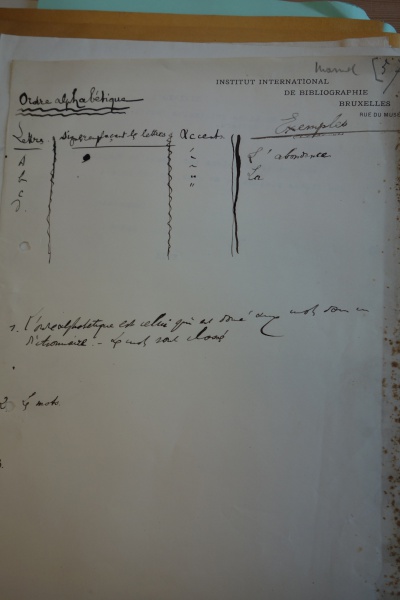 Manuel [5]
INSTITUT INTERNATIONAL
DE BIBLIOGRAPHIE
BRUXELLES
RUE DU MUSÉ
Ordre alphabétique
Lettres Signes plaçant les lettres Accents Exemples
A L'abondance
b La
c
d.
1. L'ordre alphabétique est celui qui est donné aux mots dans un
dictionnaire. - Les mots sont classés
2. Les mots
3.